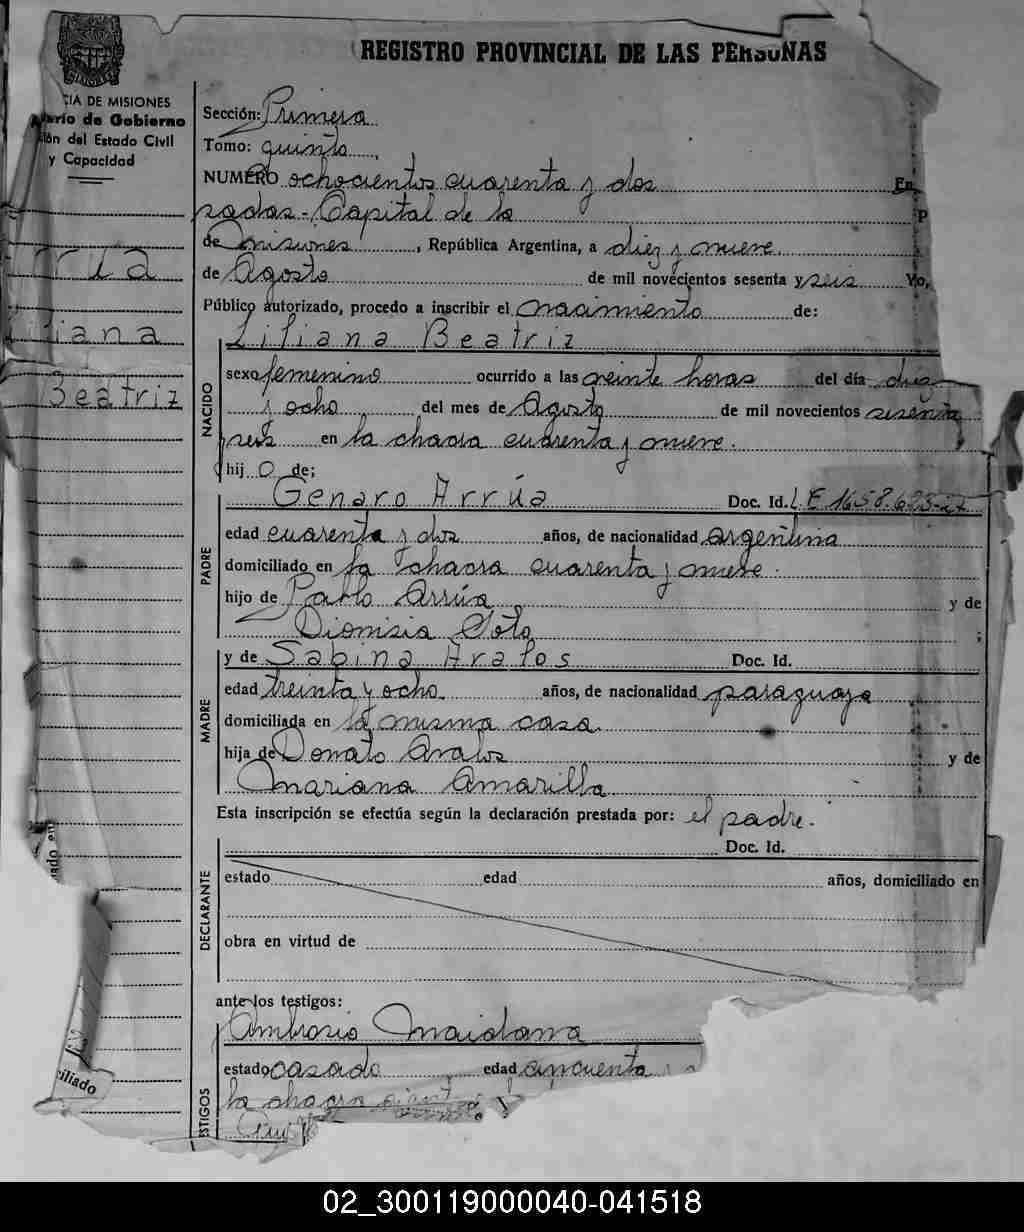 REGISTRO PROVINCIAL DE LAS PERSONAS
CIA DE MISIONES
erio de Gobierno
ión del Estado Civil
y Capacidad
Sección: Primera
Tomo: quinto
NUMERO ochocientos cuarenta y dos En
P
sadas - Capital de la
de Misiones, República Argentina, a diez y nueve
de Agosto de mil novecientos sesenta y seis Yo,
Público autorizado, procedo a inscribir el nacimiento de:
rúa
Liliana Beatriz
iliana
Beatriz
NACIDO
sexo femenino ocurrido a las veinte horas del día diez
y ocho del mes de Agosto de mil novecientos sesenta
y seis en la chacra cuarenta y nueve.
hij O de;
PADRE
Genaro Arrúa Doc. Id. L E 1658.623-27
edad cuarenta y dos años, de nacionalidad argentina
domiciliado en la chacra cuarenta y nueve.
hijo de Pablo Arrúa y de
Dionisia Soto ;
MADRE
y de Sabina Avalos Doc. Id.
edad treinta y ocho años, de nacionalidad paraguaya
domiciliada en la misma casa
hija de Donato Avalos y de
Mariana Amarilla
Esta inscripción se efectúa según la declaración prestada por: el padre.
DECLARANTE
Doc. Id.
estado edad años, domiciliado en
obra en virtud de
ante los testigos:
Ambrosio Maidana
estado casado edad cincuenta y
STIGOS
la chacra
ado en
ciliado
02_300119000040-041518